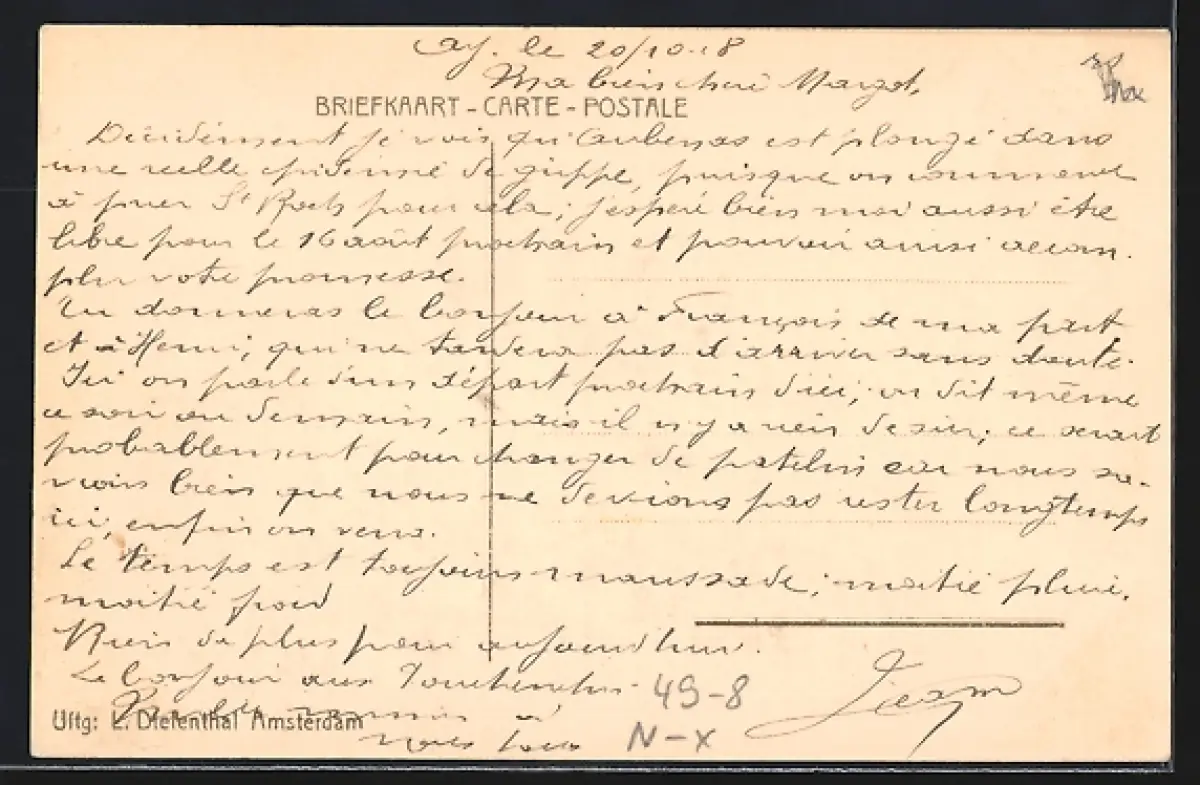 Ay. le 20/10-18
Ma bien chère Margot,
BRIEFKAART - CARTE - POSTALE
Décidément je vois qu'Aubenas est plongé dans
une réelle épidémie de grippe, puisque on commence
à prier St Roch pour cela; j'espère bien moi aussi être
libre pour le 16 août prochain et pouvoir ainsi accom-
plir votre promesse.
Tu donneras le bonjour à François de ma part
et à Henri, qui ne tardera pas d'arriver sans doute.
Ici on parle d'un départ prochain d'ici; on dit même
ce soir ou demain, mais il n'y a rien de sûr; ce serait
probablement pour changer de patelin car nous sa-
vions bien que nous ne devions pas rester longtemps
ici, enfin on verra.
Le temps est toujours maussade; moitié pluie,
moitié froid
Rien de plus pour aujourd'hui.
Le bonjour aux
49-8
Jean
Uitg: L. Diefenthal Amsterdam
à
vous tous
N-X